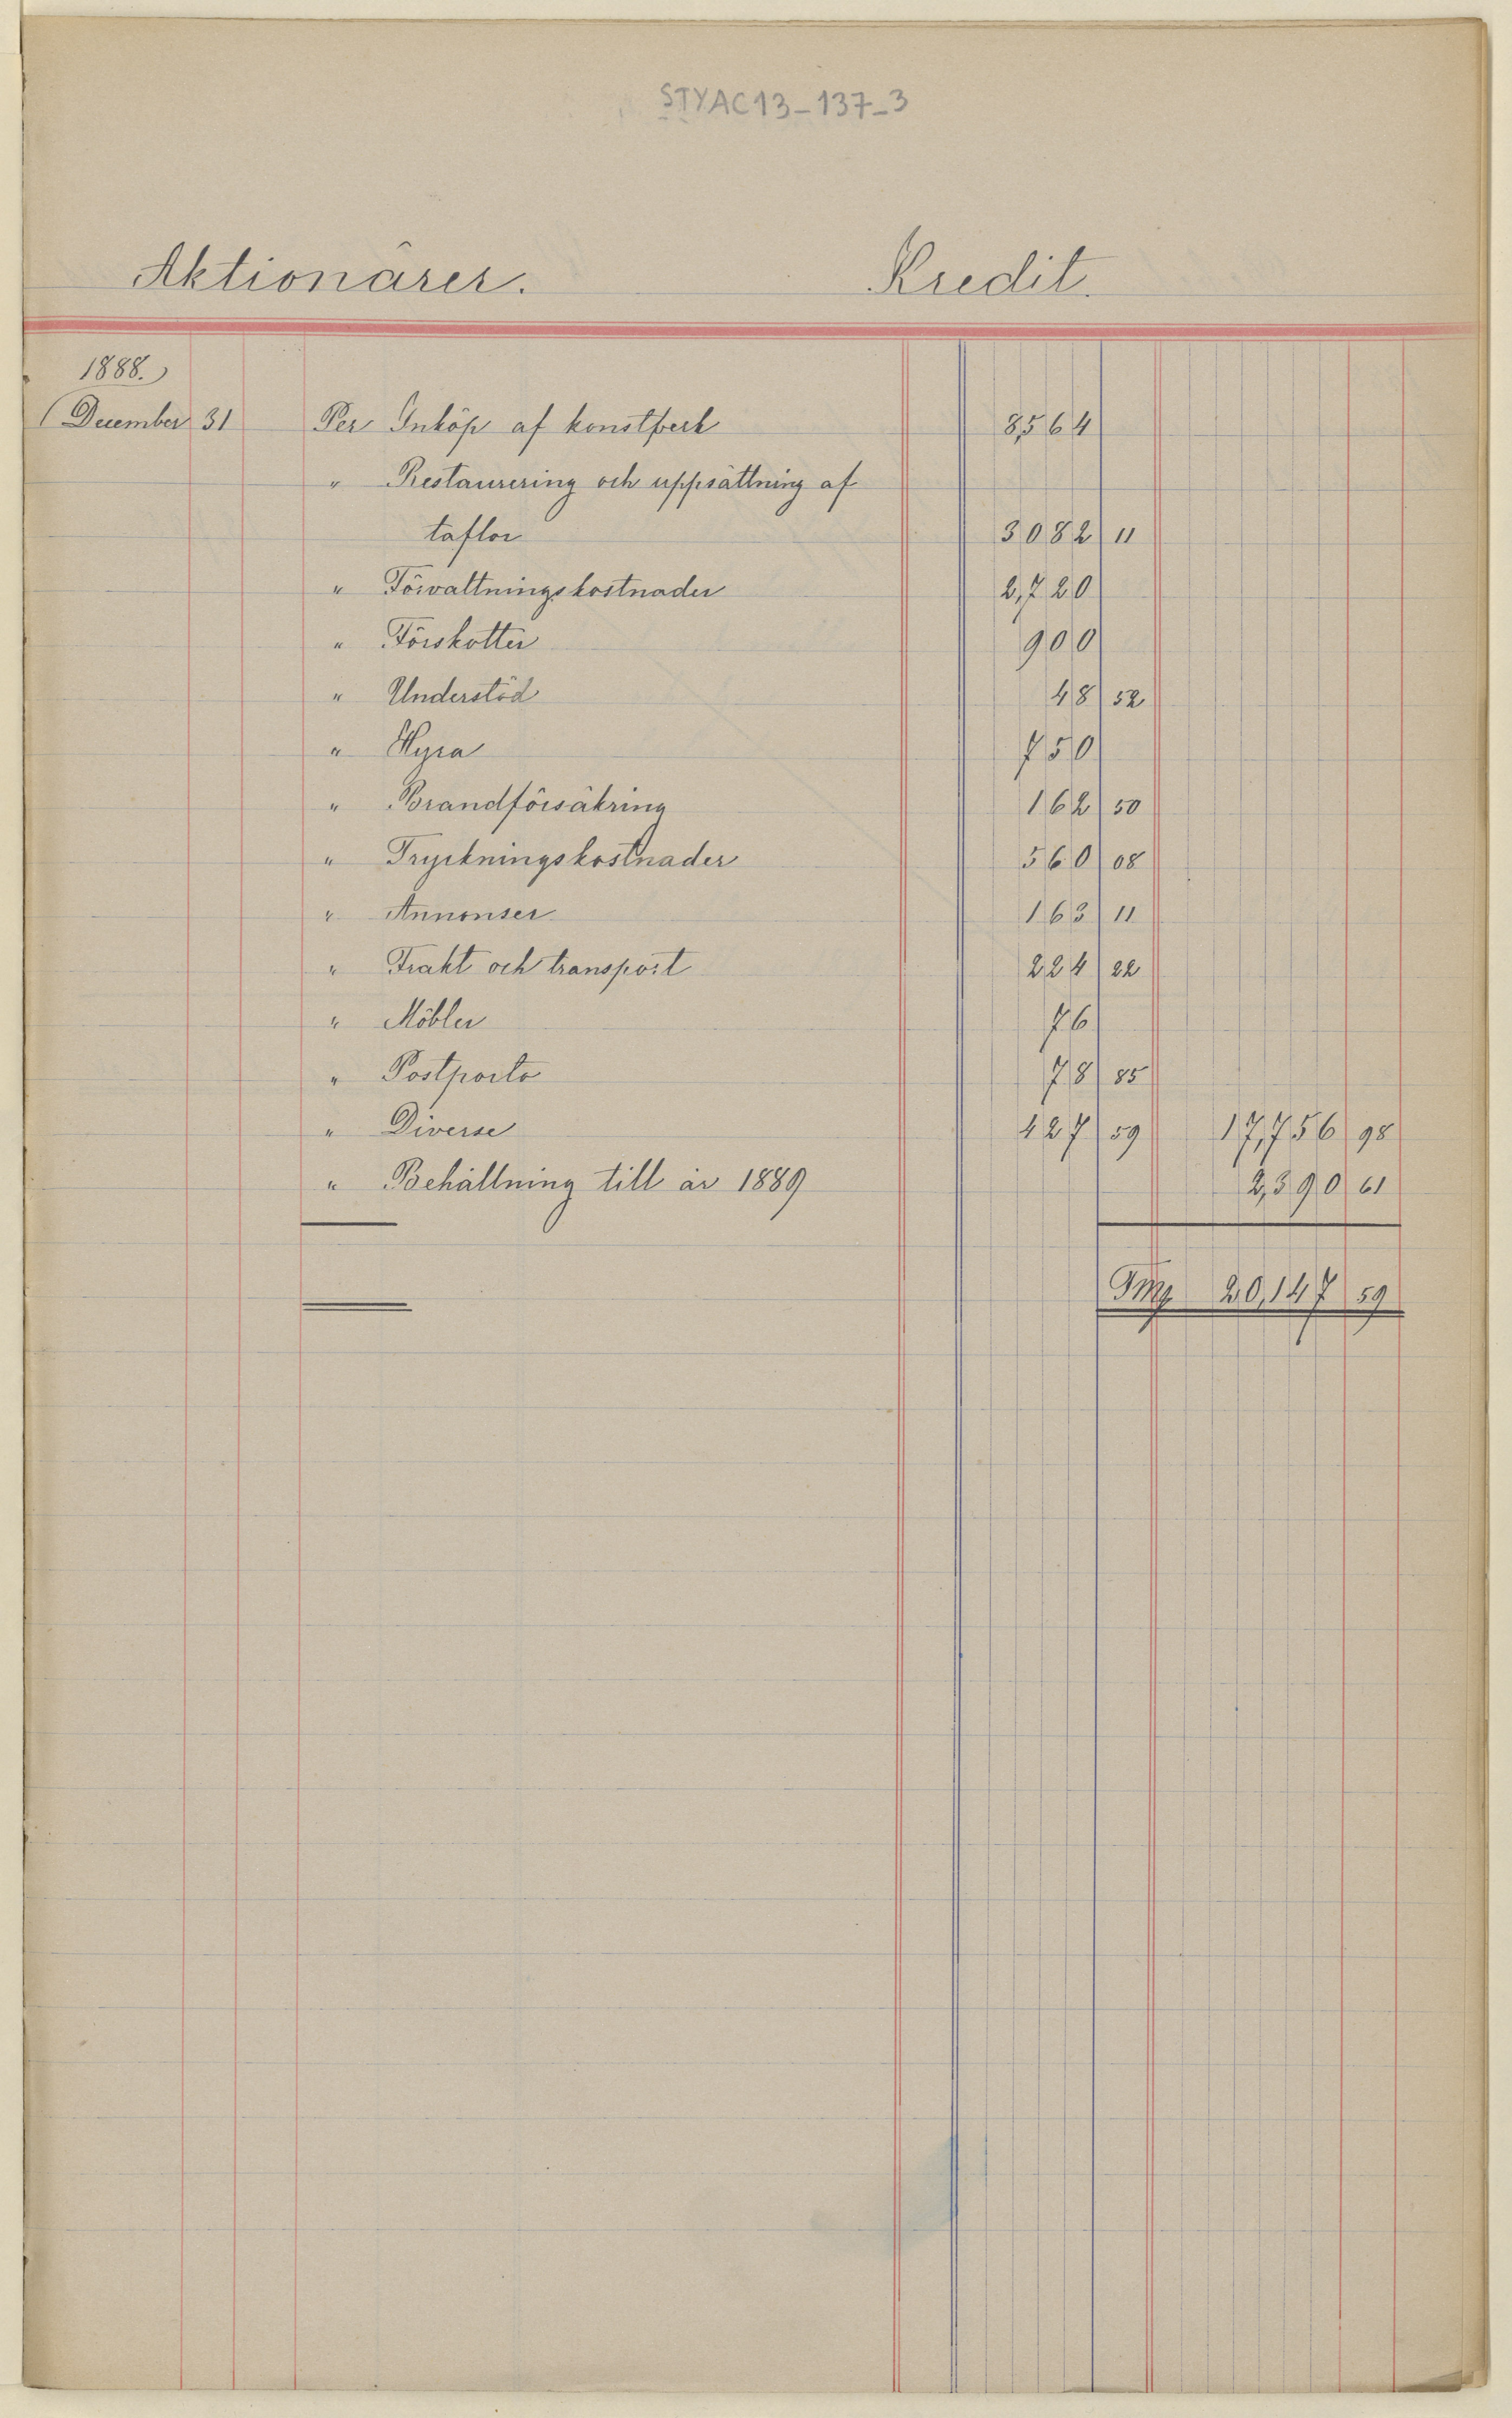 STYAC13-137-3
Aktionärer. Kredit.
1888.
December 31 Per Inköp af konstverk 8,564
" Restaurering och uppsättning af
taflor 3082 11
" Förvaltningskostnader 2,720
" Förskotter 900
" Understöd 48 52
" Hyra 750
" Brandförsäkring 162 50
" Tryckningskostnader 560 08
" Annonser 163 11
" Frakt och transport 224 22
" Möbler 76
" Postporto 78 85
" Diverse 427 59 17,756 98
" Behållning till år 1889 2,390 61
Fmg 20,147 59